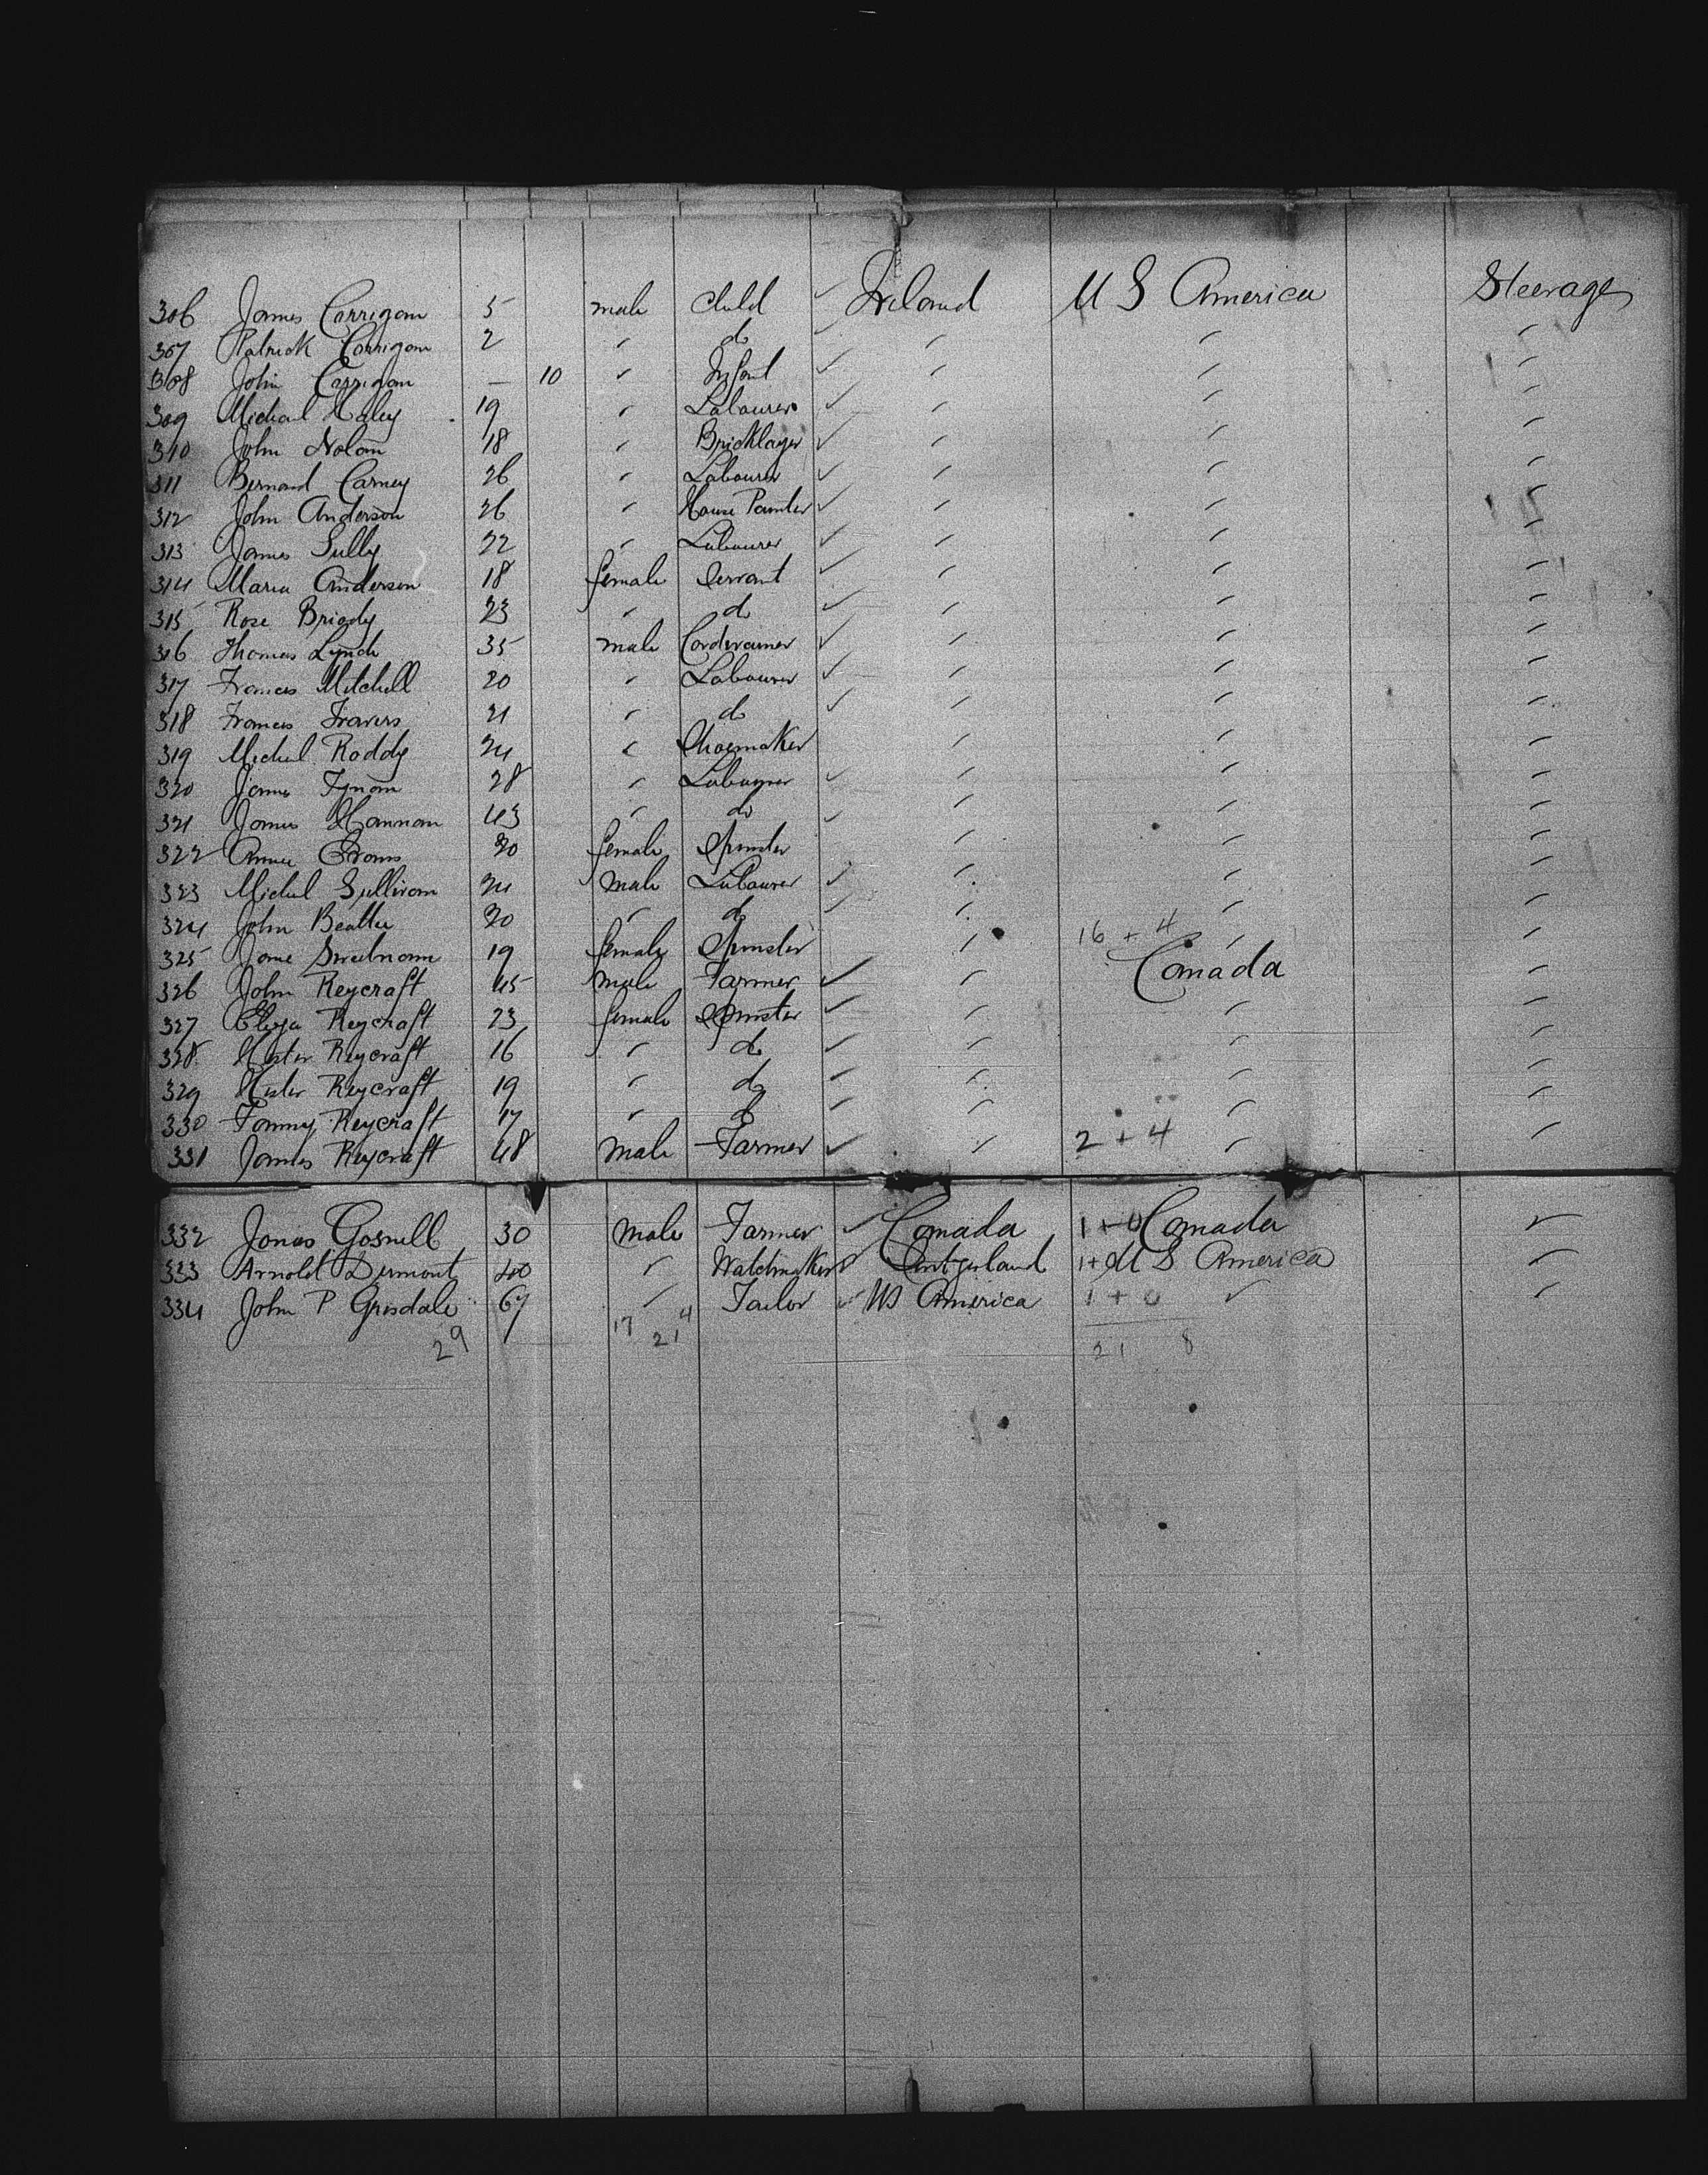 306 James Corrigan 5 male child ✓ Ireland U S America Steerage
307 Patrick Corrigan 2 " do ✓ " " "
308 John Corrigan — 10 " Infant ✓ " " "
309 Michael Haley 19 " Labourer ✓ " " "
310 John Nolan 18 " Bricklayer ✓ " " "
311 Bernard Carney 26 " Labourer ✓ " " "
312 John Anderson 26 " House Painter ✓ " " "
313 James Sully 22 " Labourer ✓ " " "
314 Maria Anderson 18 female Servant ✓ " " "
315 Rose Briody 23 " do ✓ " " "
316 Thomas Lynch 35 male Cordwainer ✓ " " "
317 Frances Mitchell 20 " Labourer ✓ " " "
318 Frances Travers 21 " do ✓ " " "
319 Michel Roddy 24 " Shoemaker " " "
320 James Tynan 28 " Labourer ✓ " " "
321 James Hannan 43 " do ✓ " " "
322 Annie 20 female Spinster " " "
323 Michel Sullivan 24 male Labourer ✓ " " "
324 John Beattie 20 " do ✓ " " "
325 Jane Sweetnam 19 female Spinster " 16 + 4 " "
326 John Reycraft 45 male Farmer ✓ " Canada "
327 Eliza Reycraft 23 female Spinster ✓ " " "
328 Hester Reycraft 16 " do ✓ " " "
329 Hester Reycraft 19 " do ✓ " " "
330 Fanny Reycraft 17 " do ✓ " " "
331 James Reycraft 48 male Farmer ✓ " 2 + 4 " "
332 Jonas Gosnell 30 male Farmer ✓ Canada 1 + 0 Canada "
333 Arnold Dermont 20 " Watchmaker Switzerland 1 + U S America "
334 John P Grisdale 67 " Tailor ✓ US America 1 + 0 " "
29 17 4 21 21 8